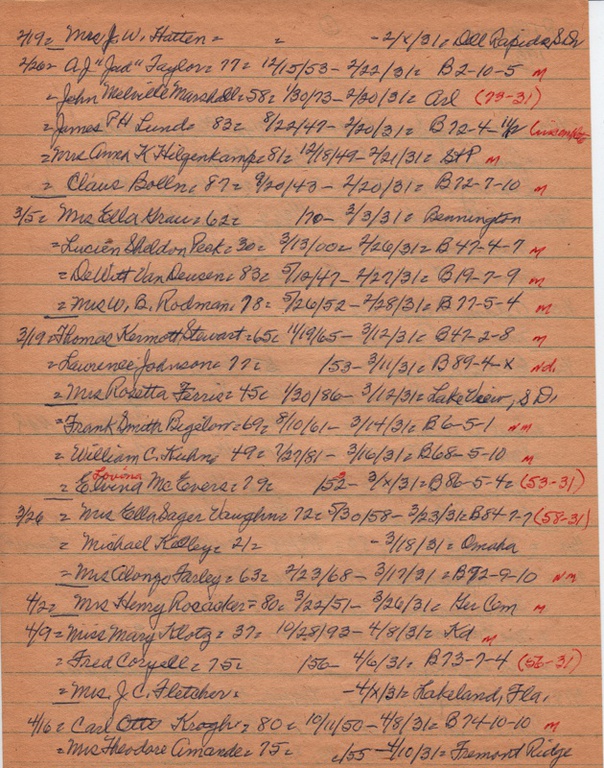 2/19 = Mrs J. W. Hatten = = - 2/x/31 = Dell Rapids, S.D.
2/26 = A J "Jad" Taylor = 77 = 12/15/53 - 2/22/31 = B 2-10-5 M
= John Melville Marshall = 58 = 1/30/73 - 2/20/31 = Arl (73-31)
= James P H Lund = 83 = 8/22/47 - 2/20/31 = B 72-4-11/2
= Mrs Anna K Hilgenkamp = 81 = 12/18/49 - 2/21/31 = St P M
= Claus Bolln = 87 = 9/20/43 - 2/20/31 = B 72-7-10 M
3/5 = Mrs Ella Grau = 62 = /70 - 3/3/31 = Bennington
= Lucien Sheldon Peck = 30 = 3/13/00 = 2/26/31 = B 47-4-7 M
= DeWitt Van Deusen = 83 = 5/12/47 - 2/27/31 = B 19-7-9 M
= Mrs W. B. Rodman = 78 = 5/26/52 - 2/28/31 = B 77-5-4 M
3/19 = Thomas Kermott Stewart = 65 = 11/19/65 - 3/12/31 = B 47-2-8 M
= Lawrence Johnson = 77 = /53 - 3/11/31 = B 89-4-X nd.
= Mrs Rosetta Ferris = 45 = 1/30/86 - 3/12/31 = Lake View, S D.
= Frank Smith Bigelow = 69 = 8/10/61 - 3/14/31 = B 6-5-1 NM
= William C. Kuhn = 49 = 7/27/81 - 3/16/31 = B 68-5-10 M
= Elvina Lovina McEvers = 79 = /52 3 - 3/x/31 = B 86-5-4 = (53-31)
3/26 = Mrs Ella Sager Vaughn = 72 = 5/30/58 - 3/23/31 = B 84-7-7 (58-31)
= Michael Kelley = 21 = - 3/18/31 = Omaha
= Mrs Alonzo Farley = 63 = 2/23/68 - 3/17/31 = B 92-9-10 NM
4/2 = Mrs Henry Rosacker = 80 = 3/22/51 - 3/26/31 = Ger Cem M
4/9 = Miss Mary Klotz = 37 = 10/28/93 - 4/8/31 = Kd M
= Fred Coryell = 75 = /56 - 4/6/31 = B 73-7-4 (56-31)
= Mrs. J. C. Fletcher = - 4/x/31 = Lakeland, Fla.
4/16 = Carl Otto Krogh = 80 = 10/11/50 - 4/8/31 = B 74-10-10 M
= Mrs Theodore Amande = 75 = /55 - 4/10/31 = Fremont Ridge